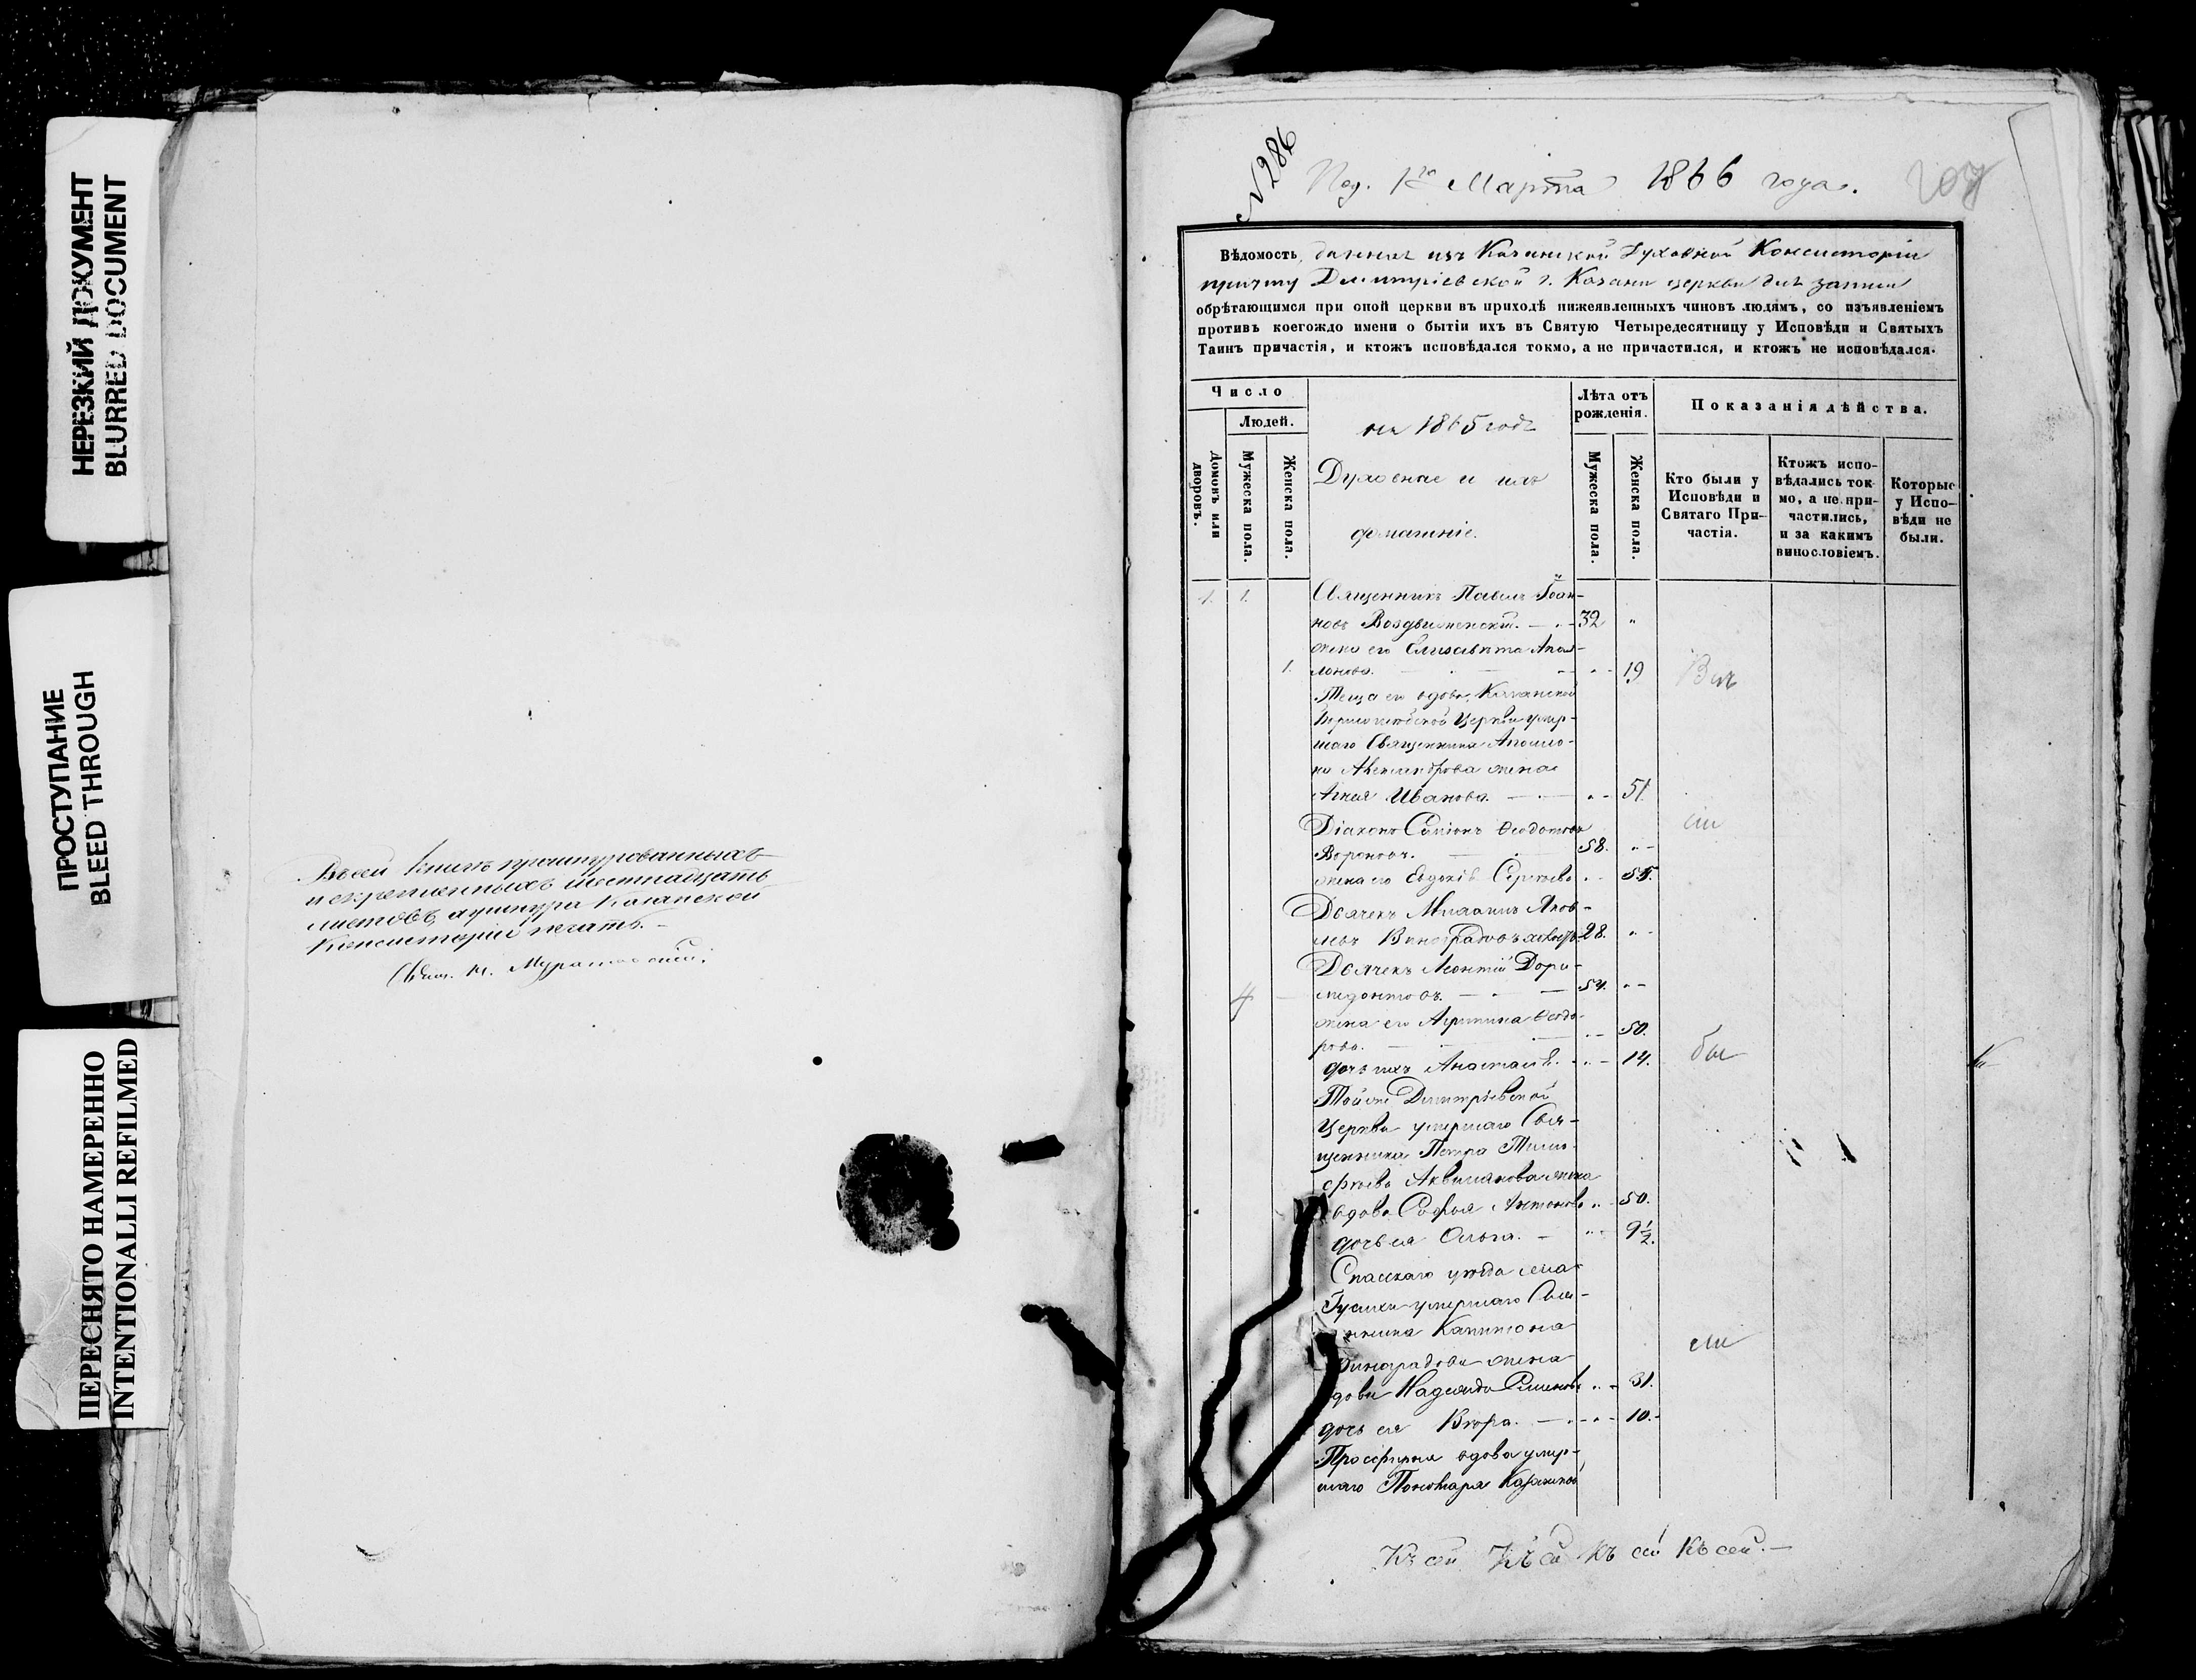 НЕРЕЗКИЙ ДОКУМЕНТ
BLURRED DOCUMENT
ПРОСТУПАНИЕ
BLEED THROUGH
ПЕРЕСНЯТО НАМЕРЕННО
INTENTIONALLI REFILMED
книгѣ прошнурованныхъ
и скрѣпленныхъ шестнадцать
листовъ, а шнура Казанской
Консисторіи печать.
№ 286
Под. 1го Марта 1866 года.
207
Вѣдомость, данная изъ Казанской Духовной Консисторіи
причту Димитріевской г. Казани церкви для записи
обрѣтающимся при оной церкви въ приходѣ нижеявленныхъ чиновъ людямъ, со изъявленіемъ
противъ коегождо имени о бытіи ихъ въ Святую Четыредесятницу у Исповѣди и Святыхъ
Таинъ причастія, и ктожъ исповѣдался токмо, а не причастился, и ктожъ не исповѣдался.
Число
Людей.
Домовъ или дворовъ.
Мужеска пола.
Женска пола.
на 1865 годъ
Духовные и ихъ
домашніе.
Лѣта отъ рожденія.
Мужеска пола.
Женска пола.
Показанія дѣйства.
Кто были у Исповѣди и Святаго При-частія.
Ктожъ испо-вѣдались ток-мо, а не при-частились, и за какимъ винословіемъ.
Которые у Испо-вѣди не были.
1. 1. Священникъ Павелъ Іоан-
новъ Воздвиженскій. 32 "
жена его Елисавета Апол-
1. лонова. 19
Теща его вдова, Казанской
Церкви умер-
шаго Священника Аполло-
на Александрова жена
Агнія Иванова. 51.
Діаконъ Симеонъ Ѳеодотовъ
Вороновъ. 58.
жена его Евдокія Сергѣева 55.
Дьячекъ Михаилъ Яков-
левъ Виноградовъ холостъ 28.
Дьячекъ Леонтій Дори-
4 медонтовъ. 54.
жена его Агрипина Ѳеодо-
рова. 50.
дочь ихъ Анастасія. 14. бы
Той же Димитріевской
Церкви умершаго Свя-
щенника Петра Тимо-
фѣева Аквилянова жена
вдова Софья Антонова 50.
дочь ея Ольга. 9 1/2.
Спасскаго уѣзда села
умершаго Свя-
щенника Капитона
Виноградова жена
вдова Надежда Семенова 31.
дочь ея Вѣра. 10.
Просфирня вдова умер-
шаго Пономаря Казанской
Къ сей Къ сей Къ сей Къ сей.